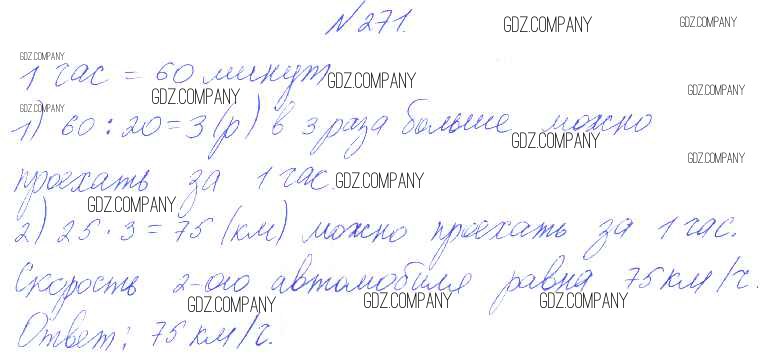 №271.
GDZ.COMPANY GDZ.COMPANY
GDZ.COMPANY
1 час = 60 минут
GDZ.COMPANY
GDZ.COMPANY GDZ.COMPANY
GDZ.COMPANY
1) 60 : 20 = 3 (р) в 3 раза больше можно
GDZ.COMPANY
GDZ.COMPANY
проехать за 1 час.
GDZ.COMPANY
GDZ.COMPANY
2) 25 · 3 = 75 (км) можно проехать за 1 час.
Скорость 2-ого автомобиля равна 75 км/ч.
GDZ.COMPANY GDZ.COMPANY GDZ.COMPANY
Ответ: 75 км/ч.